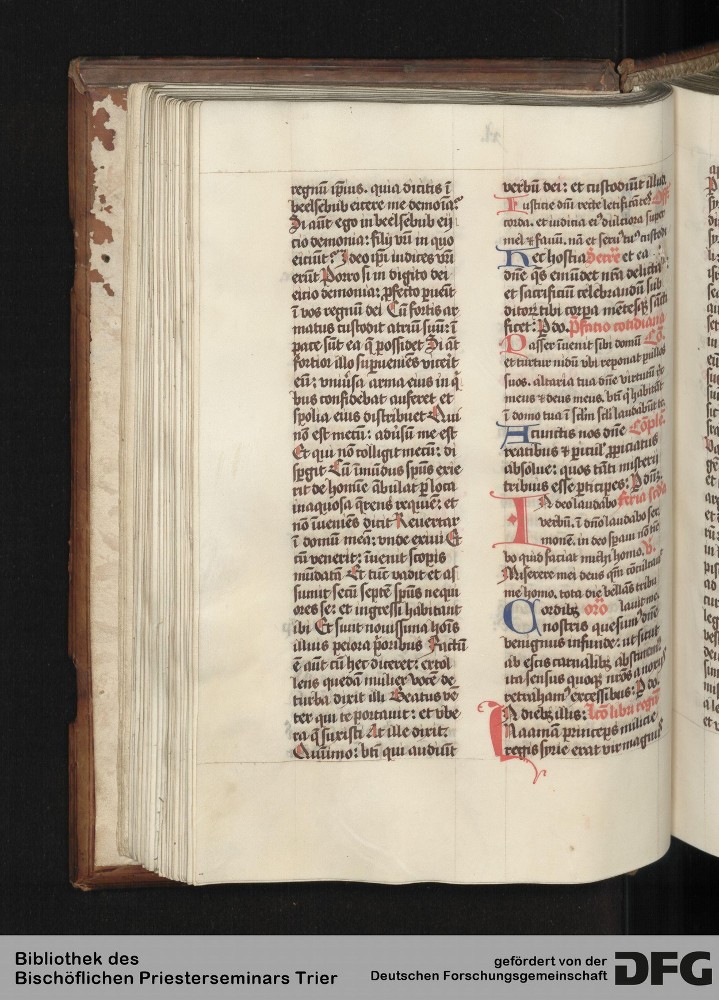 regnū ip̄ius. quia dicitis ī
beelsebub eicere me demoīa.
Si aūt ego in beelsebub eij
cio demonia: filij vr̄i in quo
eiciūt? Ideo ip̄i iudices vr̄i
erūt Porro si in digito dei
eicio demonia: ꝓfecto ꝑueīt
ī vos regnū dei Cū fortis ar
matus custodit atriū suū: ī
pace sūt ea q̄ possidet Si aūt
fortior illo suꝑueniēs vicerit
eū: vniūsa arma eius in q̄
bus confidebat auferet et
spolia eius distribuet Qui
nō est mecū: aduersū me est
Et qui nō colligit mecū: di
spergit Cū īmūdus spūs exie
rit de homīe ābulat ꝑ loca
inaquosa q̄rens requiē: et
nō īueniēs dicit Reuertar
ī domū meā: vnde exiui Et
cū venerit: īuenit scopis
mūdatā Et tūc vadit et as
sumit secū septē spūs nequi
ores se: et ingressi habitant
ibi Et sunt nouissima hoīs
illius peiora ꝑoribus Factū
ē aūt cū hec diceret: extol
lens quedā mulier vocē de
turba dixit illi Beatus vē
ter qui te portauit: et vbe
ra q̄ suxisti At ille dixit.
Quīimo: bt̄i qui audiūt
verbū dei: et custodiūt illud
Iusticie dn̄i recte letificātes Off̄
corda. et iudicia eiꝰ dulciora super
mel ⁊ fauū. nā et seruꝰ tuꝰ custodi
Hec hostia Secret̄ et ea
dn̄e q̄s emūdet nr̄a delicta
et sacrificiū celebrandū sub
ditoꝝ tibi corꝑa mētesqꝫ sācti
ficet: P do. P̄fatio cotidiana
Passer īuenit sibi domū Cō.
et turtur nidū vbi reponat pullos
suos. altaria tua dn̄e virtutū rex
meus ⁊ deus meus. bt̄i q̄ habitāt
ī domo tua ī sc̄lm sc̄li laudabūt te.
A cunctis nos dn̄e Cōplē.
reatibus ⁊ pericul' ꝓpiciatus
absolue: quos tāti misterij
tribuis esse ꝑticipes: P dn̄m.
In deo laudabo Feria sc̄da
verbū. ī dn̄o laudabo ser
monē. in deo sꝑaui nō tīe
bo quid faciat michi homo. V.
Miserere mei deus qm̄ cōculcauit
me homo. tota die bellās tribu
Cordibꝫ orō lauit me.
nostris quesumꝰ dn̄e
benignus infunde: ut sicut
ab escis carnalibꝫ abstinemꝰ.
ita sensus quoqꝫ nr̄os a noxijs
retrahamꝰ excessibus: P do.
In diebꝫ illis: Lcō libri regū
Naaman princeps milicie
regis syrie erat vir magnus
Bibliothek des
Bischöflichen Priesterseminars Trier
gefördert von der
Deutschen Forschungsgemeinschaft
DFG